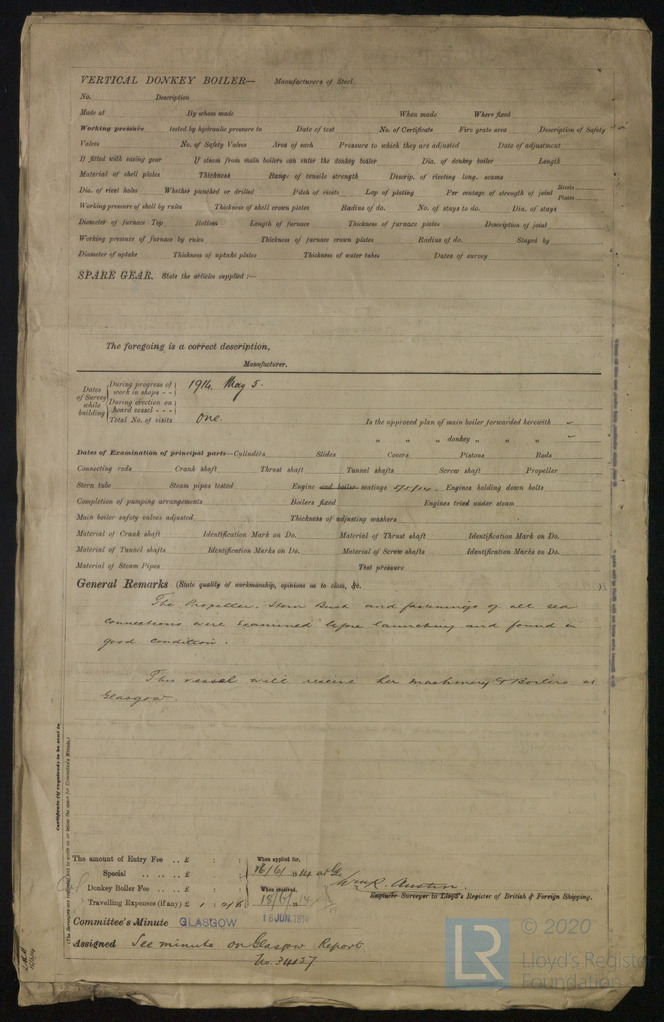 VERTICAL DONKEY BOILER— Manufacturers of Steel
No. Description
Made at By whom made When made Where fixed
Working pressure tested by hydraulic pressure to Date of test No. of Certificate Fire grate area Description of Safety
Valves No. of Safety Valves Area of each Pressure to which they are adjusted Date of adjustment
If fitted with easing gear If steam from main boilers can enter the donkey boiler Dia. of donkey boiler Length
Material of shell plates Thickness Range of tensile strength Descrip. of riveting long. seams
Dia. of rivet holes Whether punched or drilled Pitch of rivets Lap of plating Per centage of strength of joint Rivets Plates
Working pressure of shell by rules Thickness of shell crown plates Radius of do. No. of stays to do. Dia. of stays
Diameter of furnace Top Bottom Length of furnace Thickness of furnace plates Description of joint
Working pressure of furnace by rules Thickness of furnace crown plates Radius of do. Stayed by
Diameter of uptake Thickness of uptake plates Thickness of water tubes Dates of survey
SPARE GEAR. State the articles supplied:—
The foregoing is a correct description,
Manufacturer.
Dates of Survey while building
During progress of work in shops - - 1914. May 5.
During erection on board vessel - - -
Total No. of visits One.
Is the approved plan of main boiler forwarded herewith
" " " donkey " "
Dates of Examination of principal parts—Cylinders Slides Covers Pistons Rods
Connecting rods Crank shaft Thrust shaft Tunnel shafts Screw shaft Propeller
Stern tube Steam pipes tested Engine and boiler seatings 5/5/14. Engines holding down bolts
Completion of pumping arrangements Boilers fixed Engines tried under steam
Main boiler safety valves adjusted Thickness of adjusting washers
Material of Crank shaft Identification Mark on Do. Material of Thrust shaft Identification Mark on Do.
Material of Tunnel shafts Identification Marks on Do. Material of Screw shafts Identification Marks on Do.
Material of Steam Pipes Test pressure
General Remarks (State quality of workmanship, opinions as to class, &c.
The Propeller, Stern Bush and fastenings of all sea
connections were examined before launching and found in
good condition.
This vessel will receive her machinery & Boilers at
Glasgow.
Certificate (if required) to be sent to
(The Surveyors are requested not to write on or below the space for Committee's Minute.)
The amount of Entry Fee .. £ : :
Special .. £ : :
Donkey Boiler Fee .. £ : :
Travelling Expenses (if any) £ 1 :
When applied for,
16/6/14
When received,
18/6/14
Wm R. Austin.
Engineer Surveyor to Lloyd's Register of British & Foreign Shipping.
Committee's Minute GLASGOW 16 JUN. 1914
Assigned See minute on Glasgow Report
No. 34137
© 2020
LR
Lloyd's Register
Foundation